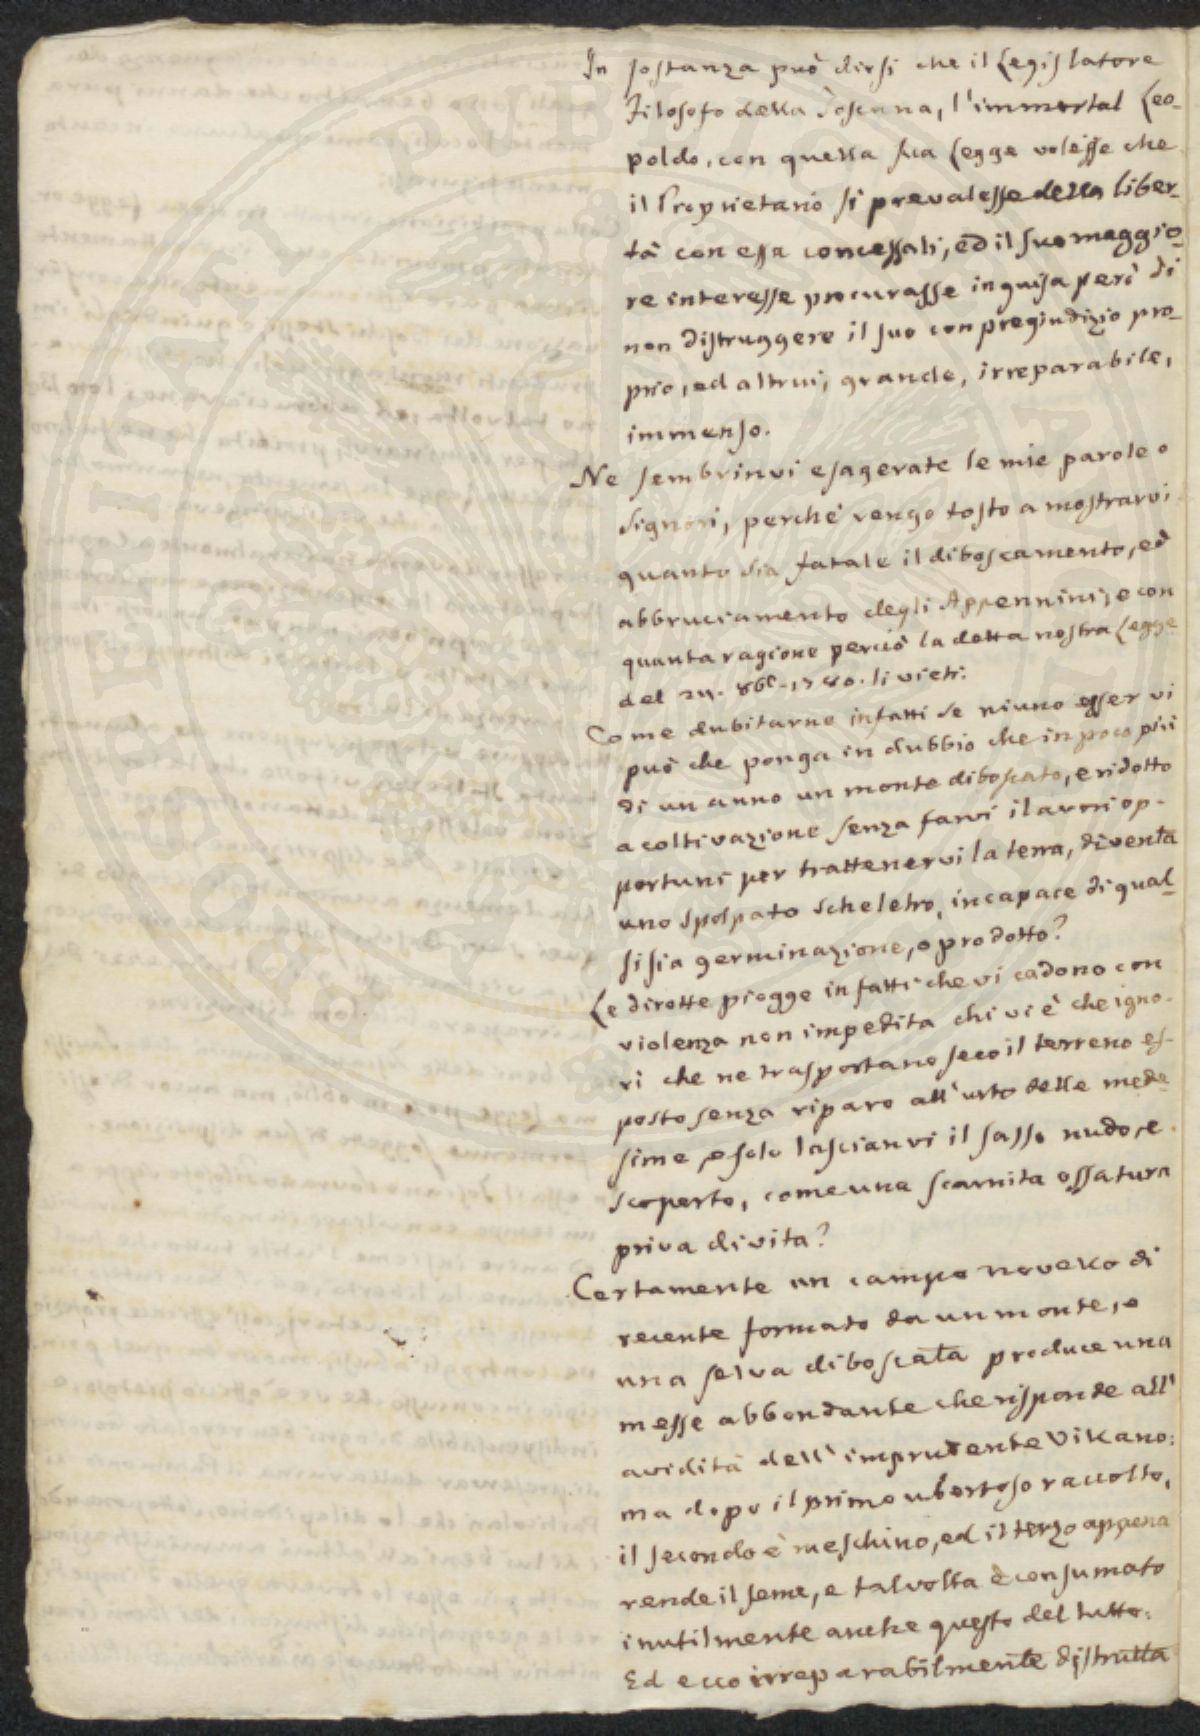 In sostanza può dirsi che il Legislatore
Filosofo della Toscana, l'immortal Leo-
poldo, con questa sua Legge volesse che
il Proprietario si prevalesse della liber-
tà con essa concessali, ed il suo maggio-
re interesse procurasse in guisa però di
non distruggere il suo con pregiudizio pro-
prio, ed altrui, grande, irreparabile,
immenso.
Ne sembrinvi esagerate le mie parole o
Signori, perchè vengo tosto a mostrarvi
quanto sia fatale il diboscamento, ed
abbruciamento degli Appennini, e con
quanta ragione perciò la detta nostra Legge
del 24. 8bre 1780. li vieti.
Come dubitarne infatti se niuno esser vi
può che ponga in dubbio che in poco più
di un anno un monte diboscato, e ridotto
a coltivazione senza farvi i lavori op-
portuni per trattenervi la terra, diventa
uno spolpato scheletro, incapace di qual-
sisia germinazione, o prodotto?
Le dirotte piogge infatti che vi cadono con
violenza non impedita chi vi è che igno-
ri che ne trasportano seco il terreno es-
posto senza riparo all'urto delle mede-
sime, e solo lascianvi il sasso nudo, e
scoperto, come una scarnita ossatura
priva di vita?
Certamente un campo novello di
recente formato da un monte, o
una selva diboscata produce una
messe abbondante che risponde all'
avidità dell'imprudente Villano:
ma dopo il primo ubertoso raccolto,
il secondo è meschino, ed il terzo appena
rende il seme, e talvolta è consumato
inutilmente anche questo del tutto:
Ed ecco irreparabilmente distrutta